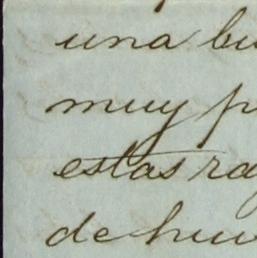 una bu
muy p
estas ra
de huv